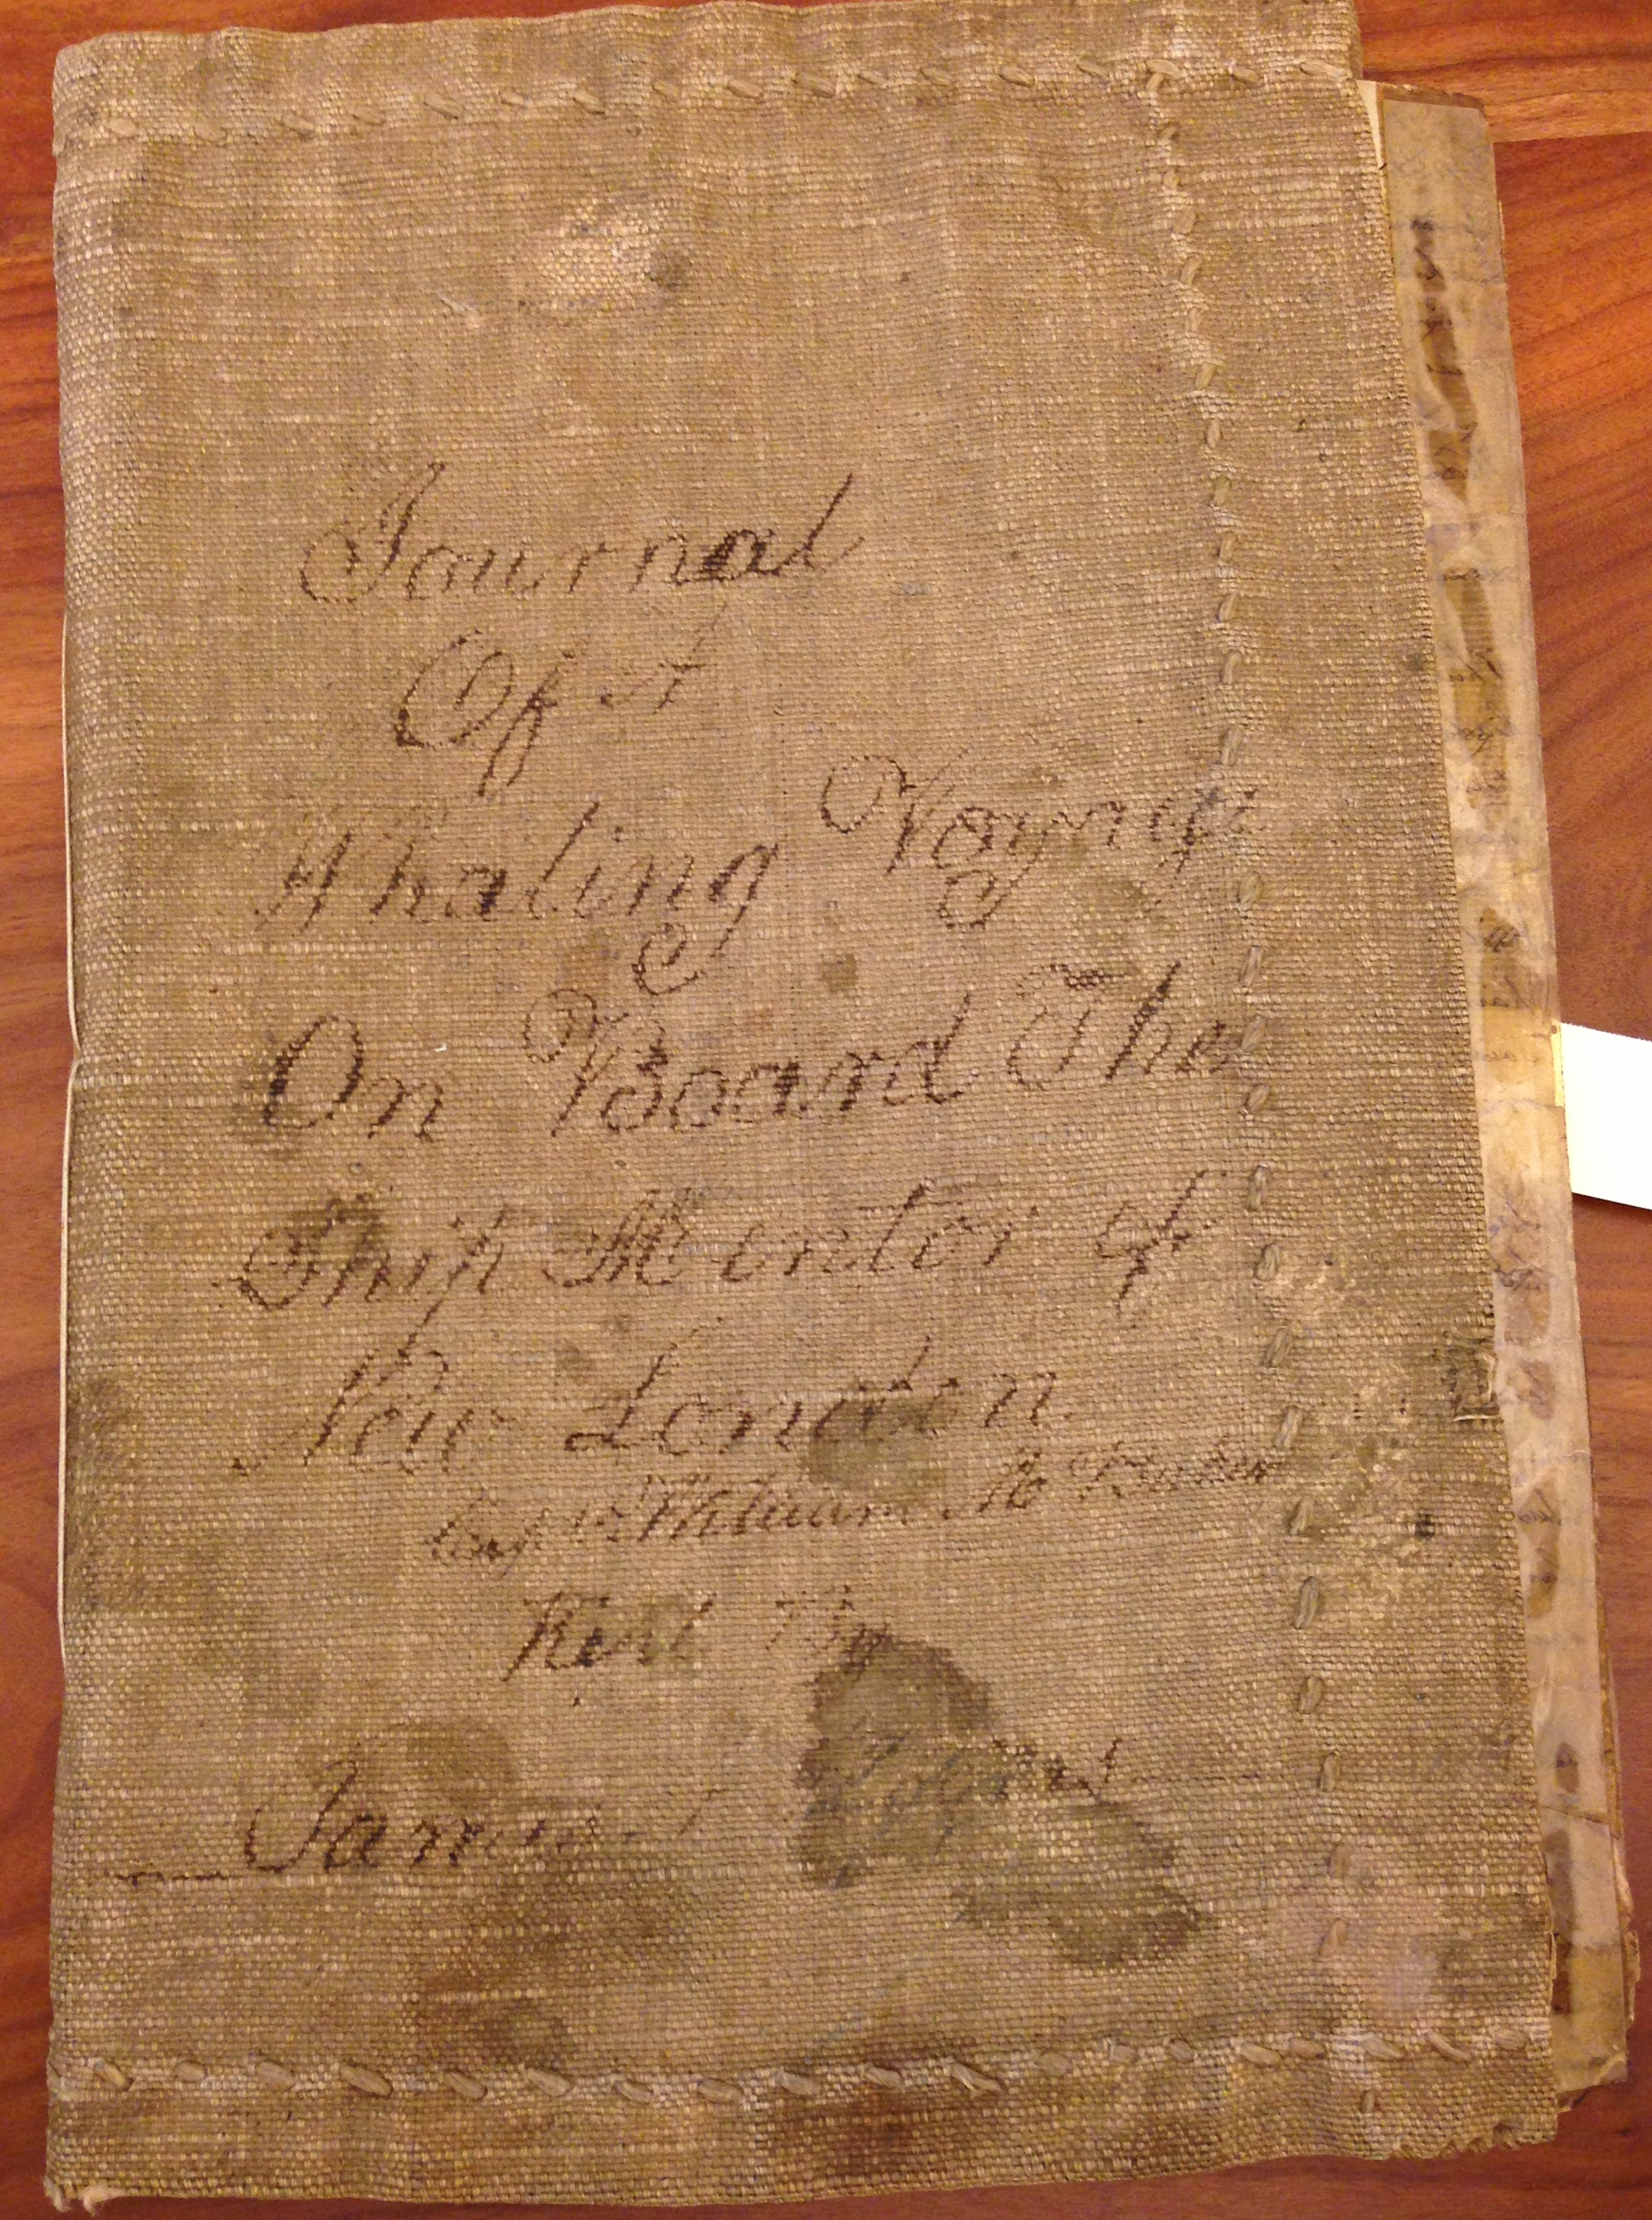 Journal
Of A
Whaling Voyage
On Board The
Ship Mentor of
New London
Capt William M Baker
Kept By
James